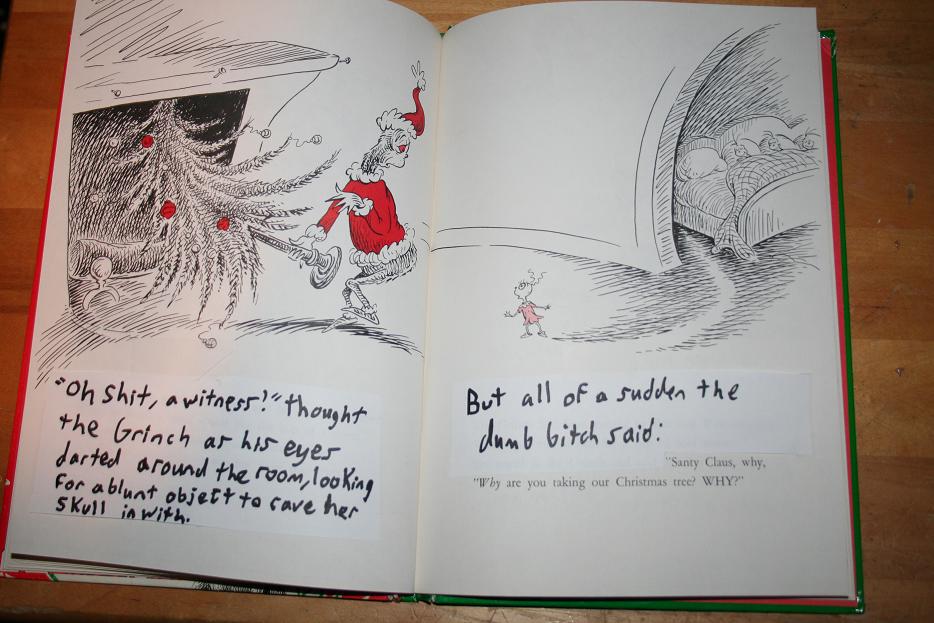 "Oh shit, a witness!" thought
the Grinch as his eyes
darted around the room, looking
for a blunt object to cave her
skull in with.
But all of a sudden the
dumb bitch said:
"Santy Claus, why,
"Why are you taking our Christmas tree? WHY?"